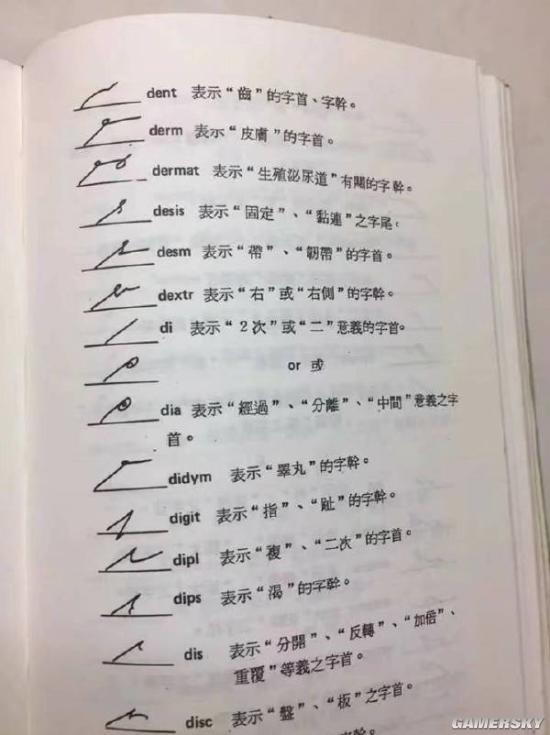 dent 表示“齒”的字首、字幹。
derm 表示“皮膚”的字首。
dermat 表示“生殖泌尿道”有關的字幹。
desis 表示“固定”、“黏連”之字尾。
desm 表示“帶”、“韌帶”的字首。
dextr 表示“右”或“右側”的字幹。
di 表示“2次”或“二”意義的字首。
or 或
dia 表示“經過”、“分離”、“中間”意義之字
首。
didym 表示“睪丸”的字幹。
digit 表示“指”、“趾”的字幹。
dipl 表示“複”、“二次”的字首。
dips 表示“渴”的字幹。
dis 表示“分開”、“反轉”、“加倍”、
重覆”等義之字首。
disc 表示“盤”、“板”之字首。
GAMERSKY